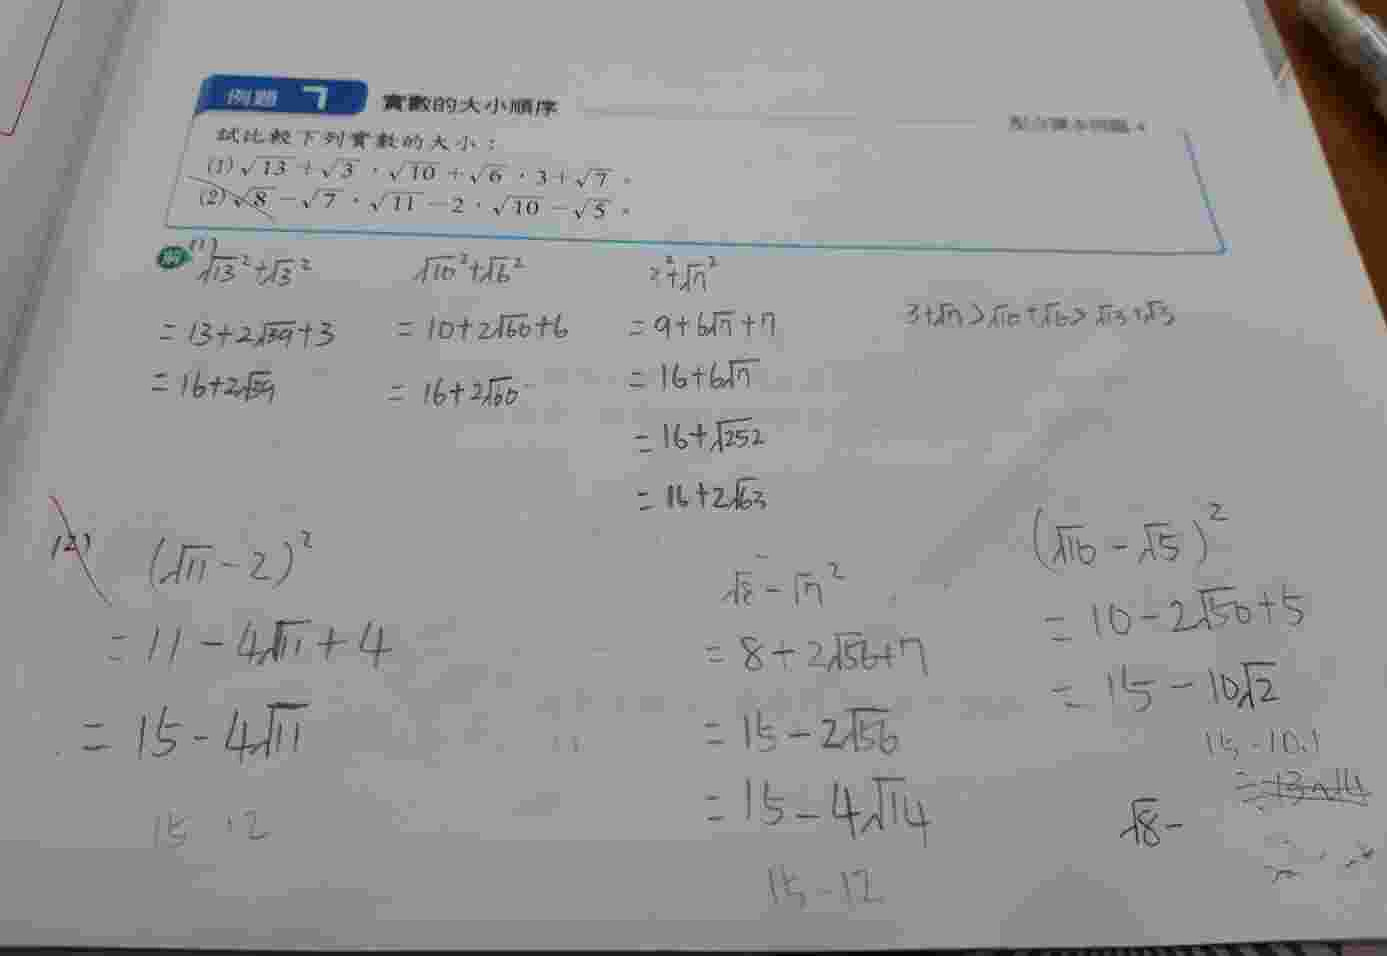 例題 7 實數的大小順序
試比較下列實數的大小：
(1)√13＋√3，√10＋√6，3＋√7。
(2)√8－√7，√11－2，√10－√5。
解 (1) √13²+√3² √10²+√6² 3²+√7²
=13+2√39+3 =10+2√60+6 =9+6√7+7
=16+2√39 =16+2√60 =16+6√7
=16+√252
=16+2√63
3+√7>√10+√6>√13+√3
(2) (√11-2)²
=11-4√11+4
=15-4√11
15-12
√8-√7²
=8+2√56+7
=15-2√56
=15-4√14
15-12
(√10-√5)²
=10-2√50+5
=15-10√2
15-10.1
√8-